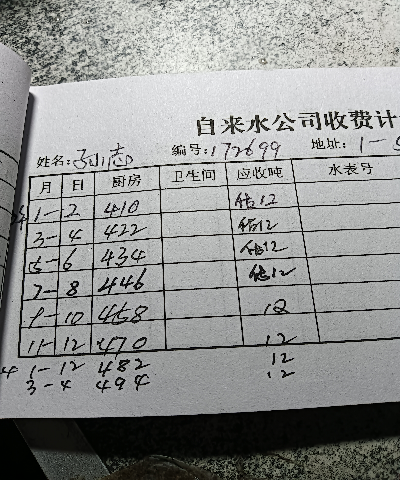 自来水公司收费计
姓名: 孙志 编号: 172699 地址: 1-
月 日 厨房 卫生间 应收吨 水表号
1-2 410 估12
3-4 422 估12
5-6 434 估12
7-8 446 估12
9-10 458 12
11-12 470 12
4 1-12 482 12
3-4 494 12